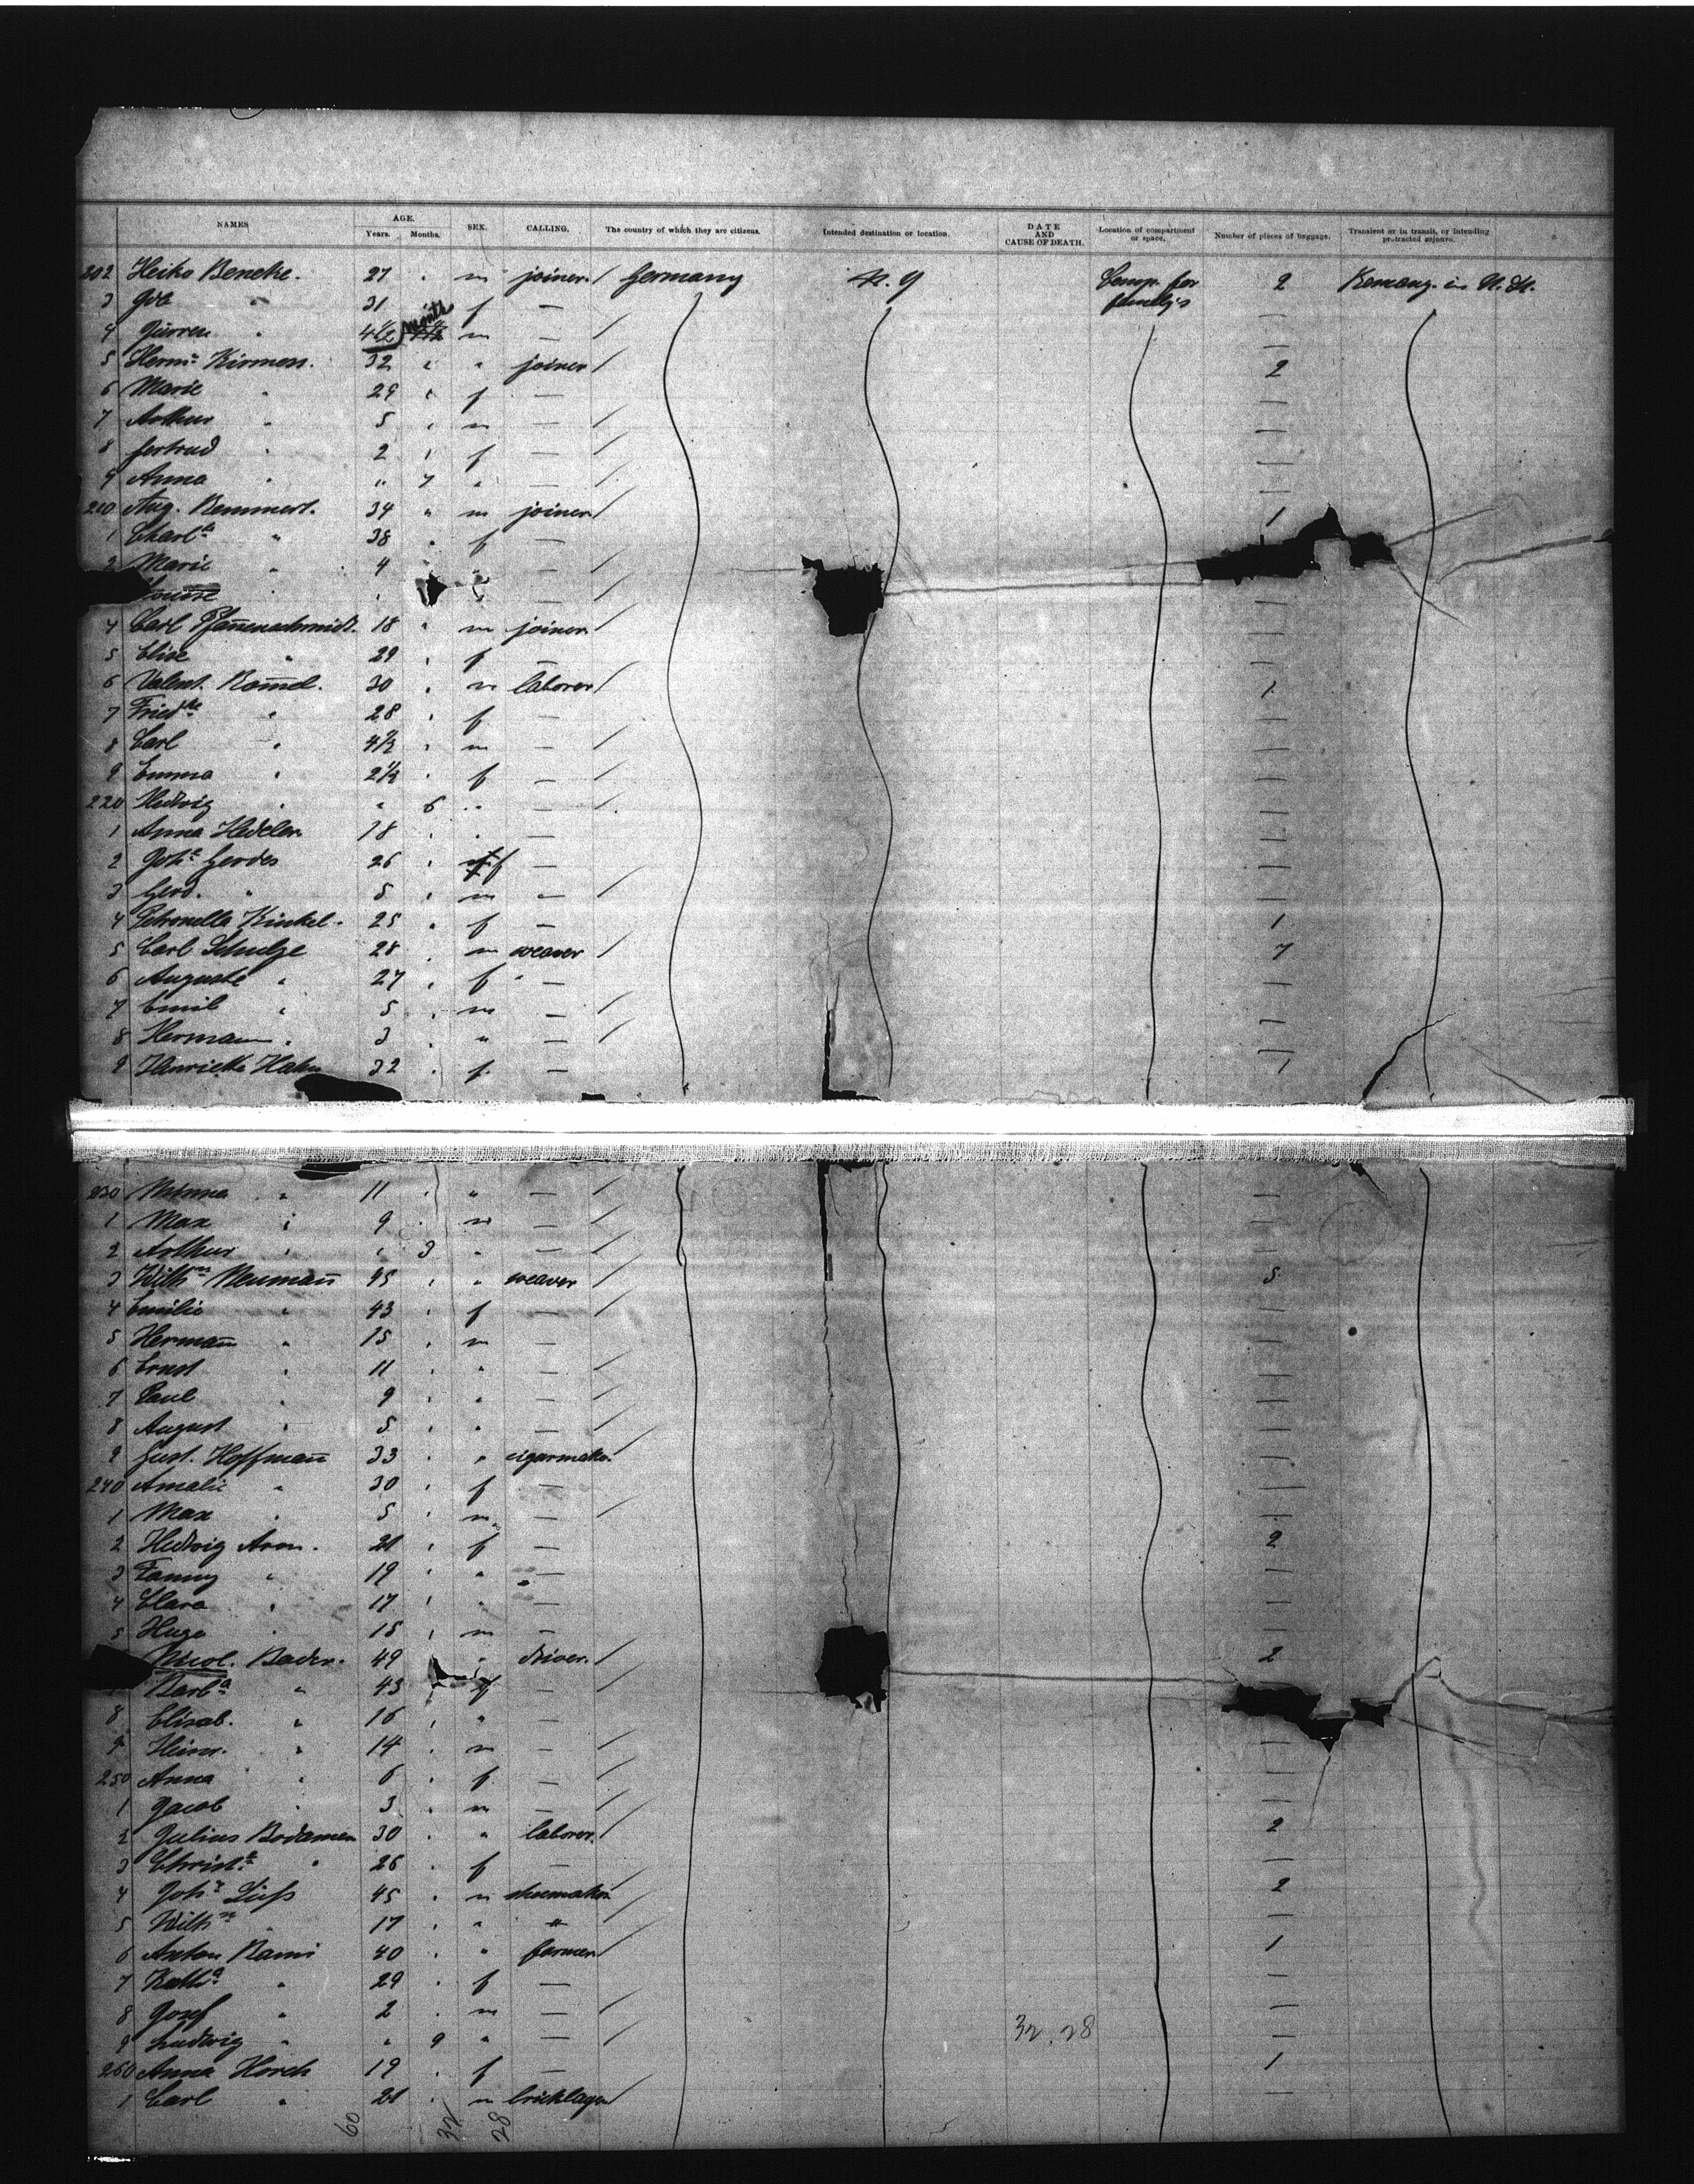 NAMES AGE. Years. Months. SEX. CALLING. The country of which they are citizens. Intended destination or location. DATE AND CAUSE OF DEATH. Location of compartment or space. Number of pieces of baggage. Transient or in transit, or intending protracted sojourn.
202 Heiko Beneke. 27 m joiner Germany N. Y Comp. for family's 2 in U. St.
3 31 f —
4 4½ month m —
5 Herm. Kirmess. 32 " joiner 2
6 Marie " 29 f — —
7 Arthur " 5 m — —
8 Gertrud " 2 f — —
9 Anna " " 7 " — —
210 Aug. Bemmert. 34 " m joiner 1
1 Charlte " 38 f —
2 Marie " 4 —
Louise " —
4 Carl Pfannenschmidt. 18 m joiner —
5 Elise " 29 f — —
6 Valent. 30 m laborer 1
7 Friedke " 28 f — —
8 Carl " 4½ m — —
9 Emma " 2½ f — —
220 Hedwig " " 6 " — —
1 Anna Hedeler 18 " — —
2 Johe Gerdes 26 f — —
3 Gerd. " 5 m — —
4 Petronella Kinkel. 25 f — 1
5 Carl Schulze 28 m weaver 7
6 Auguste " 27 f — —
7 Emil " 5 m — —
8 Hermann " 3 " — —
9 Henriette Hahn 32 f. — 1
230 Minna " 11 " — —
1 Max " 9 m — —
2 Arthur " " 3 " — —
3 Wilhm Neumann 45 " weaver 5
4 Emilie " 43 f — —
5 Hermann " 15 m — —
6 Ernst " 11 " — —
7 Paul " 9 " — —
8 August " 5 " — —
9 Gust. Hoffmann 33 " cigarmaker —
240 Amalie " 30 f — —
1 Max " 5 m — —
2 Hedwig Aron. 21 f — 2
3 Fanny " 19 " — —
4 Clara " 17 " — —
5 Hugo " 15 m — —
Nicol. Bader. 49 " driver. 2
Barba " 43 f —
8 Elisab. " 16 " —
9 Heinr. " 14 m — —
250 Anna " 6 f — —
1 Jacob " 3 m — —
2 Julius Bodamer 30 " laborer. 2
3 Christe " 26 f — —
4 Johs Süss 45 m shoemaker 2
5 Wilhm " 17 " " —
6 Anton 40 " farmer 1
7 Katha " 29 f — —
8 Josef " 2 m — —
9 Ludwig " " 9 " — — 32.28
260 Anna Horch 19 f — 1
1 Carl " 21 m bricklayer —
60 32 28